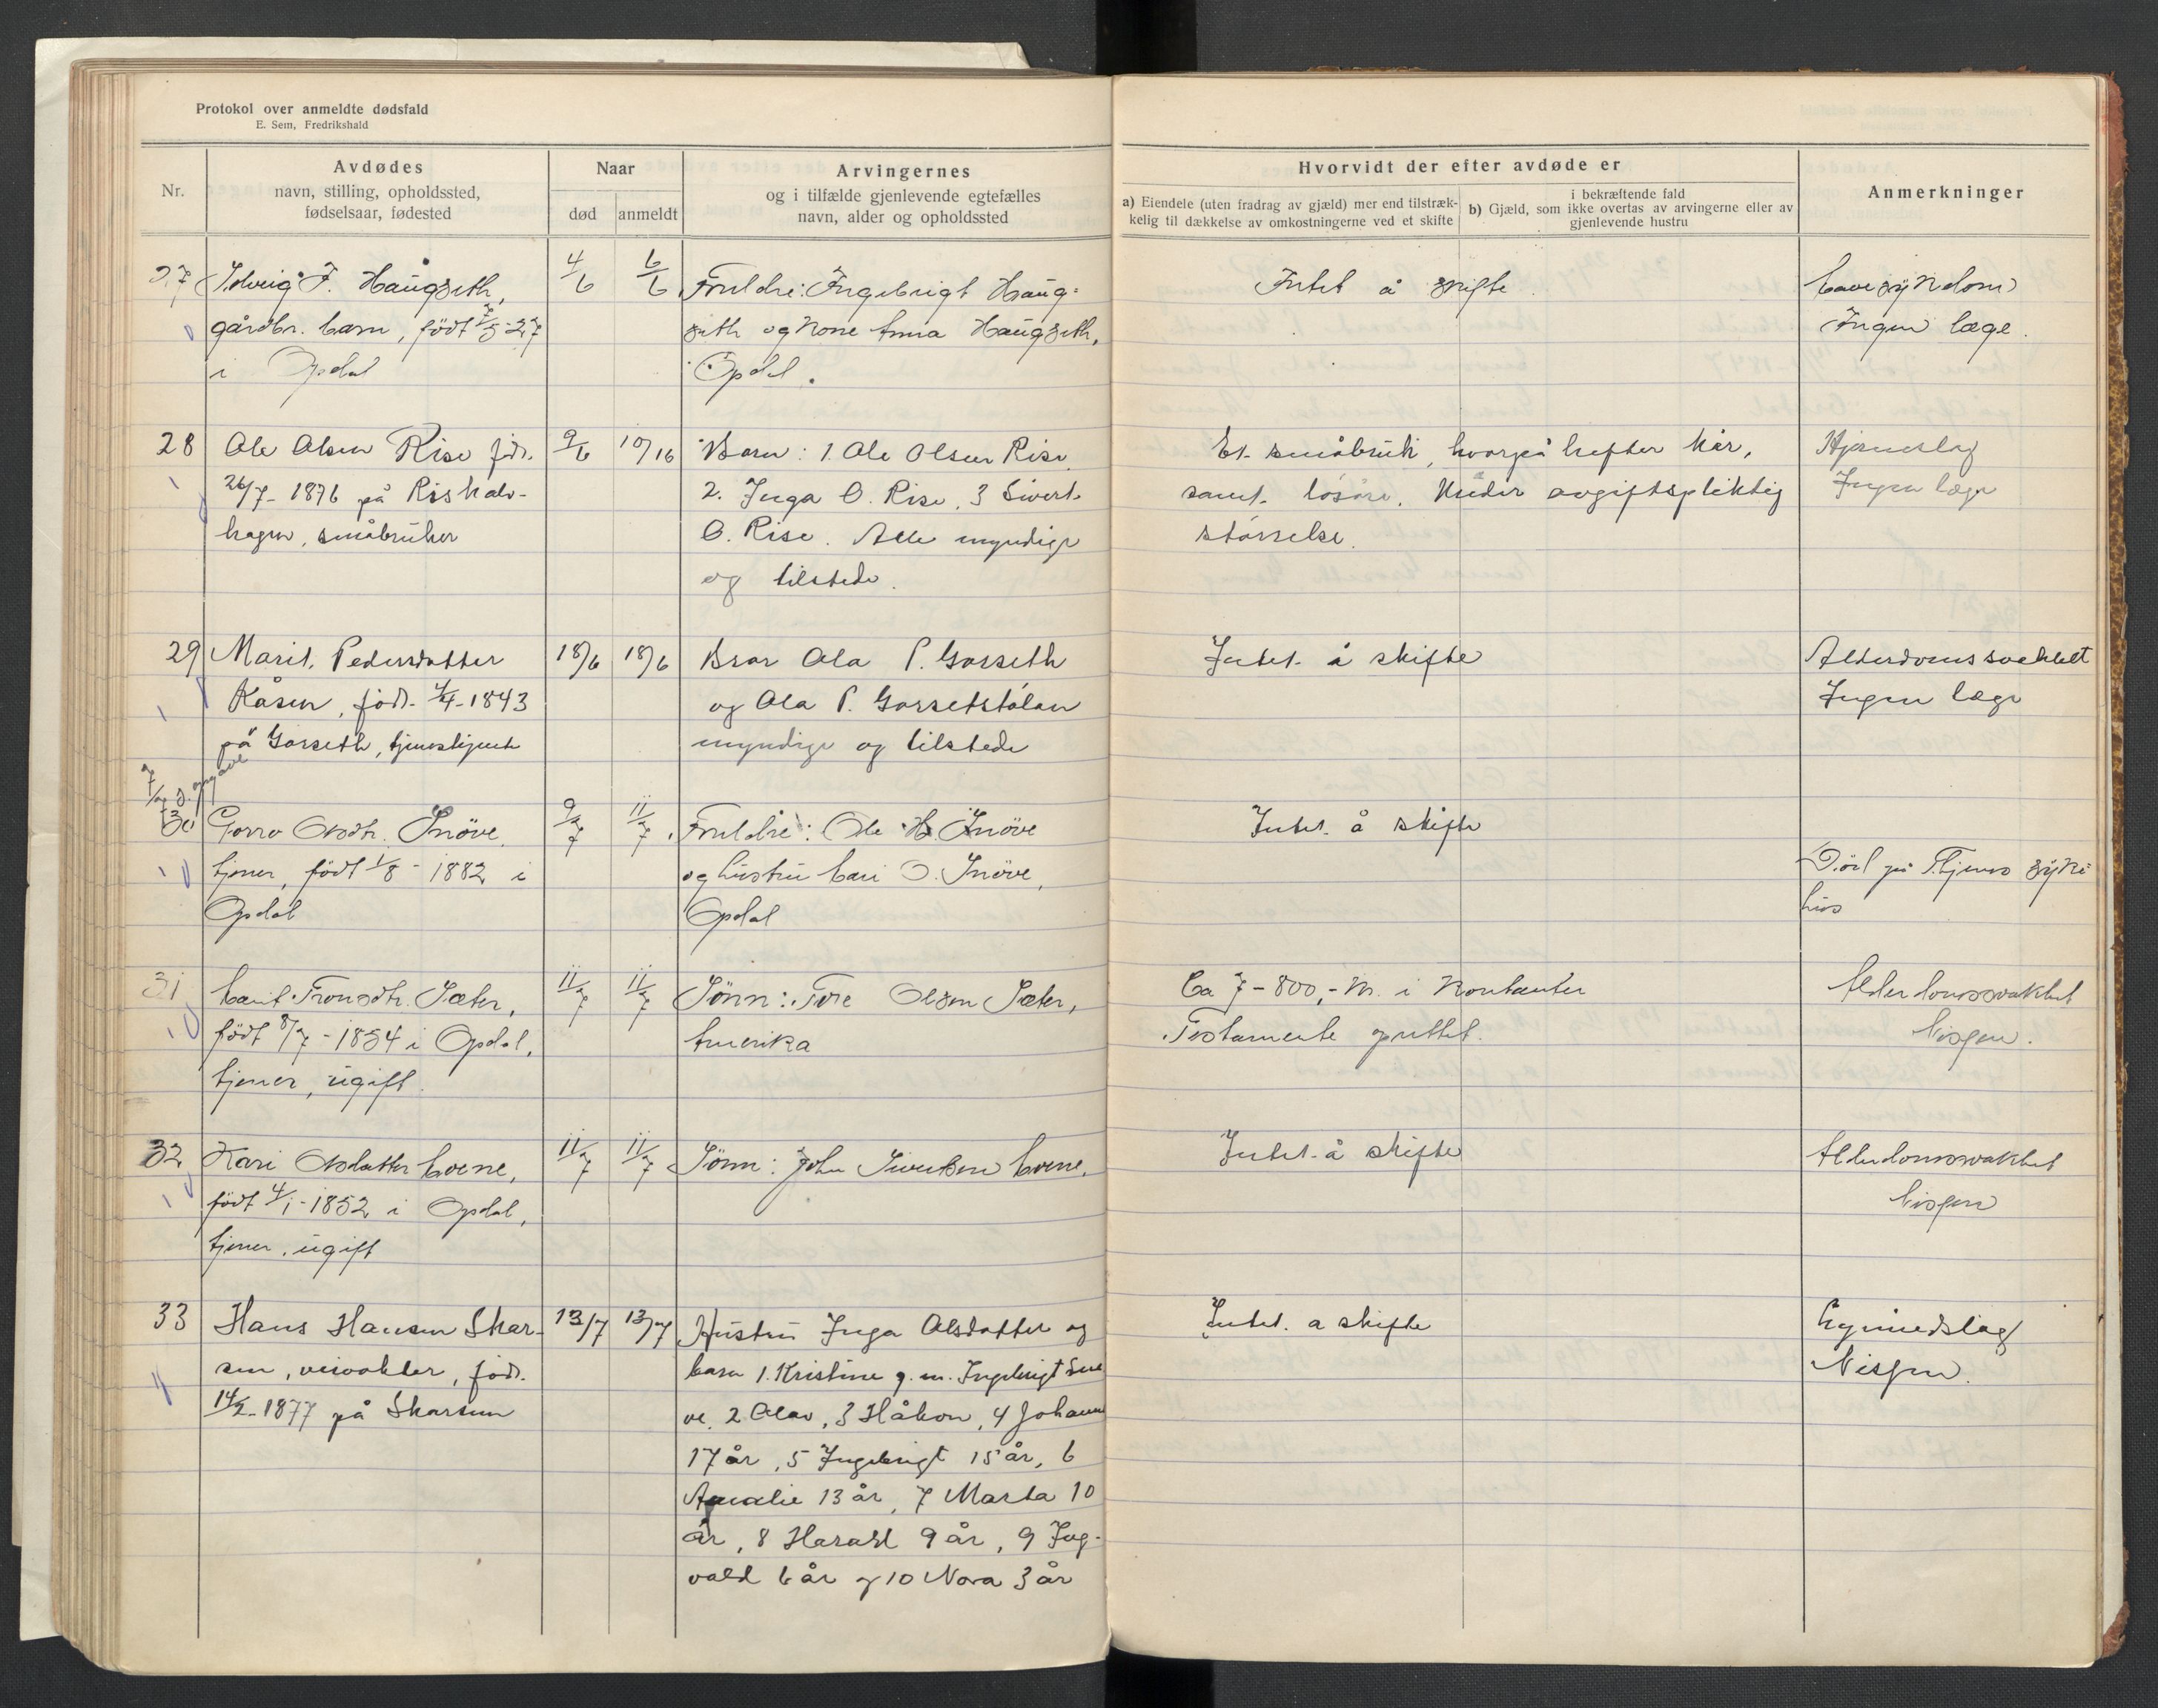 Protokol over anmeldte dødsfald
E. Sem, Fredrikshald
Nr.
Avdødes
navn, stilling, opholdssted,
fødselsaar, fødested
Naar
død
anmeldt
Arvingernes
og i tilfælde gjenlevende egtefælles
navn, alder og opholdssted
Hvorvidt der efter avdøde er
a) Eiendele (uten fradrag av gjæld) mer end tilstræk-
kelig til dækkelse av omkostningerne ved et skifte
i bekræftende fald
b) Gjæld, som ikke overtas av arvingerne eller av
gjenlevende hustru
Anmerkninger
27
Solveig I. Haugseth,
gårdbr. barn, født 7/5-27
i Opdal
4/6
6/6
Foreldre: Ingebrigt Haug-
seth og kone Anna Haugseth,
Opdal.
Intet å skifte.
Ingen læge.
28
Ole Olsen Rise född.
26/7-1876 på Riskalv-
hagen, småbruker
9/6
10/16
Barn: 1. Ole Olsen Rise
2. Inga O. Rise, 3 Sivert
O. Rise. Alle myndige
og tilstede.
Et småbruk, hvorpå hefter kår,
samt løsøre. Under avgiftspliktig
størrelse.
Hjerneslag
Ingen læge
29
Marit Pedersdatter
Kåsen, född. 4/4-1843
på Gorseth, tjenestejente
18/6
18/6
Bror Ola P. Gorseth
og Ola P. Gorsetstølan
myndige og tilstede
Intet å skifte
Alderdomssvekket
Ingen læge
30
Gorro Olsdtr. Snöve,
tjener, född 1/8-1882 i
Opdal
9/7
11/7
Foreldre: Ole H. Snöve
og hustru Mari O. Snöve,
Opdal
Intet å skifte
Död på Tr.hjems syke-
hus
31
Marit Tronsdtr. Sæter,
född 8/7-1854 i Opdal,
tjener, ugift.
11/7
11/7
Sönn: Tore Olsen Sæter,
Amerika
Ca 7-800,- kr. i kontanter
Testamente oprettet.
Alderdomssvakhet
Nisjen.
32
Kari Olsdatter Loene,
född 4/1-1852 i Opdal,
tjener, ugift
11/7
11/7
Sönn: John Sivertsen Loene.
Intet å skifte
Alderdomssvakhet
Nisjen
33
Hans Hansen Skar-
sem, veivokter, född.
14/2-1877 på Skarsem
13/7
13/7
Hustru Inga Olsdatter og
barn 1. Kristine g.m. Ingebrigt Snø
ve, 2 Olav, 3 Håkon, 4 Johann
17 år, 5 Ingebrigt 15 år, 6
Amalie 13 år, 7 Marta 10
år, 8 Harald 9 år, 9 Ing-
vald 6 år og 10 Nora 3 år
Intet å skifte
Nisjen.